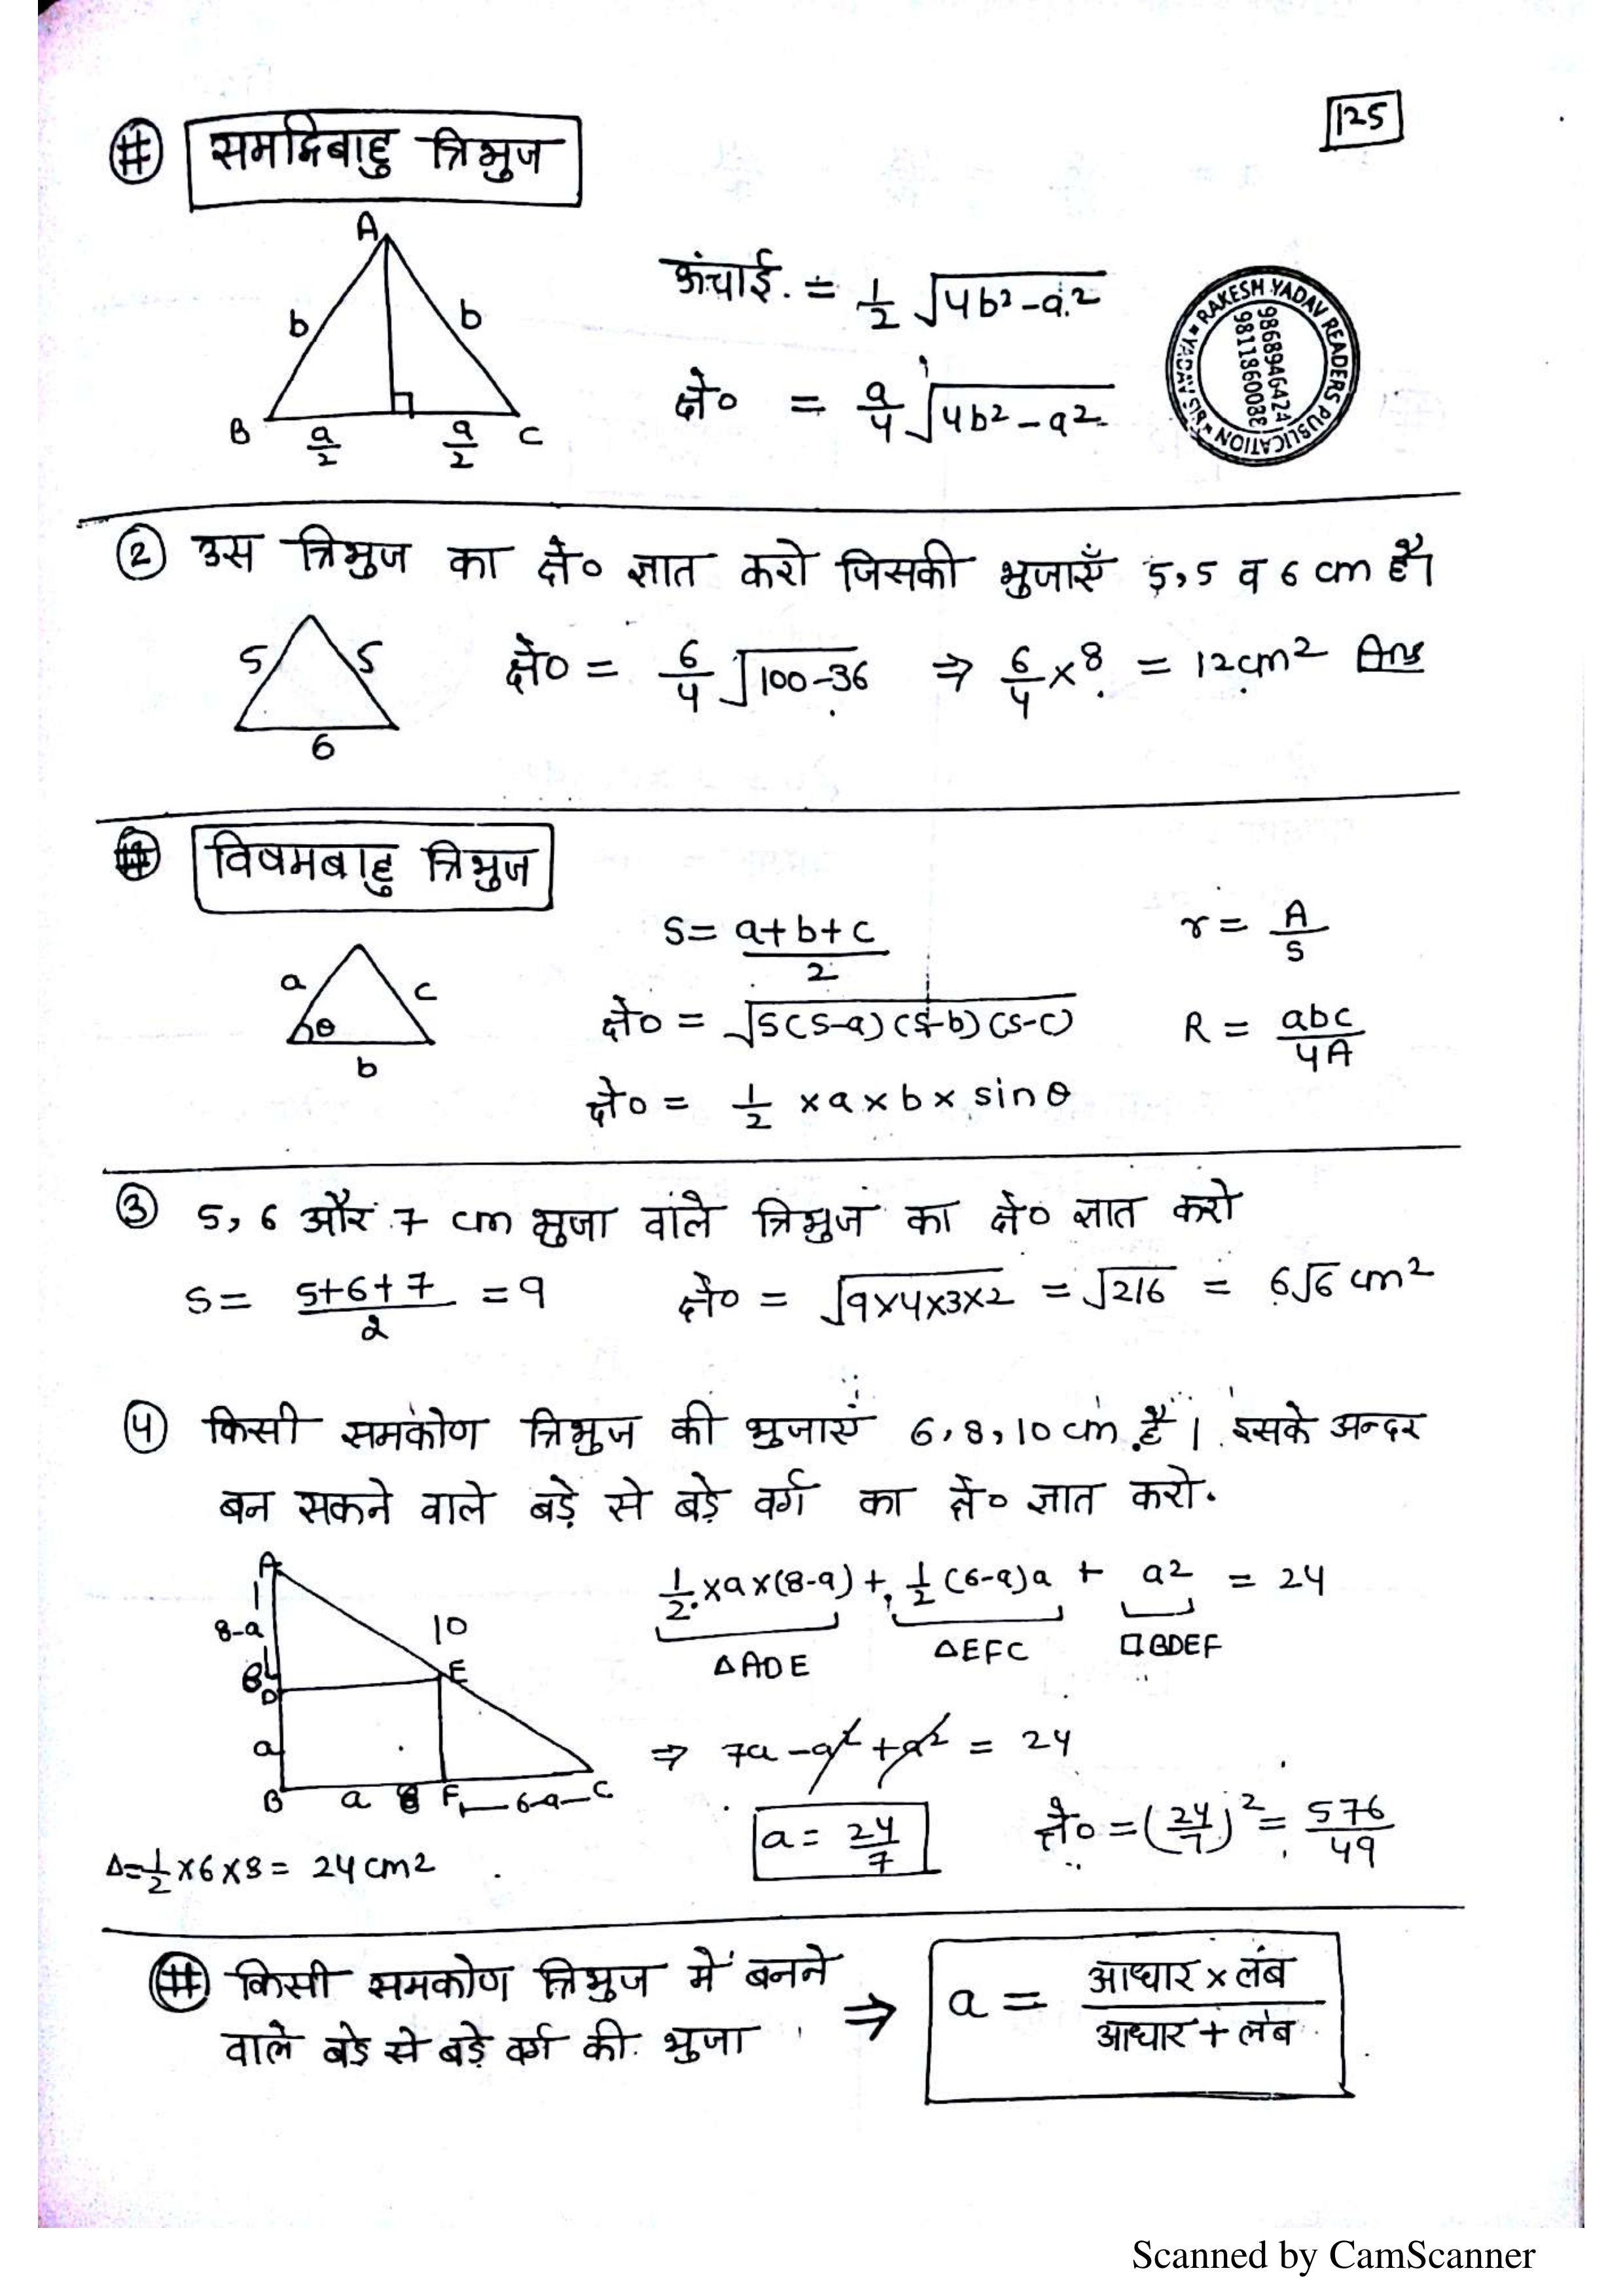 125
# समद्विबाहु त्रिभुज
A
b b
B a/2 a/2 C
ऊंचाई. = 1/2 √(4b²-a²)
क्षे० = a/4 √(4b²-a²)
RAKESH YADAV READERS PUBLICATION
9868946424
9811860088
② उस त्रिभुज का क्षे० ज्ञात करो जिसकी भुजाएँ 5,5 व 6 cm है।
5 5
6
क्षे० = 6/4 √(100-36) ⇒ 6/4 × 8 = 12cm² Ans
# विषमबाहु त्रिभुज
a c
θ
b
S = (a+b+c)/2
r = A/S
क्षे० = √(S(S-a)(S-b)(S-c))
R = abc/4A
क्षे० = 1/2 × a × b × sinθ
③ 5, 6 और 7 cm भुजा वाले त्रिभुज का क्षे० ज्ञात करो
S = (5+6+7)/2 = 9 क्षे० = √(9×4×3×2) = √216 = 6√6 cm²
④ किसी समकोण त्रिभुज की भुजाएं 6, 8, 10 cm है। इसके अन्दर
बन सकने वाले बड़े से बड़े वर्ग का क्षे० ज्ञात करो.
A
8-a 10
D E
a
B a F 6-a C
Δ = 1/2 × 6 × 8 = 24 cm²
1/2 × a × (8-a) + 1/2 (6-a)a + a² = 24
ΔADE ΔEFC □BDEF
⇒ 7a - a² + a² = 24
a = 24/7
क्षे० = (24/7)² = 576/49
# किसी समकोण त्रिभुज में बनने
वाले बडे से बड़े वर्ग की भुजा ⇒ a = (आधार × लंब)/(आधार + लंब)
Scanned by CamScanner